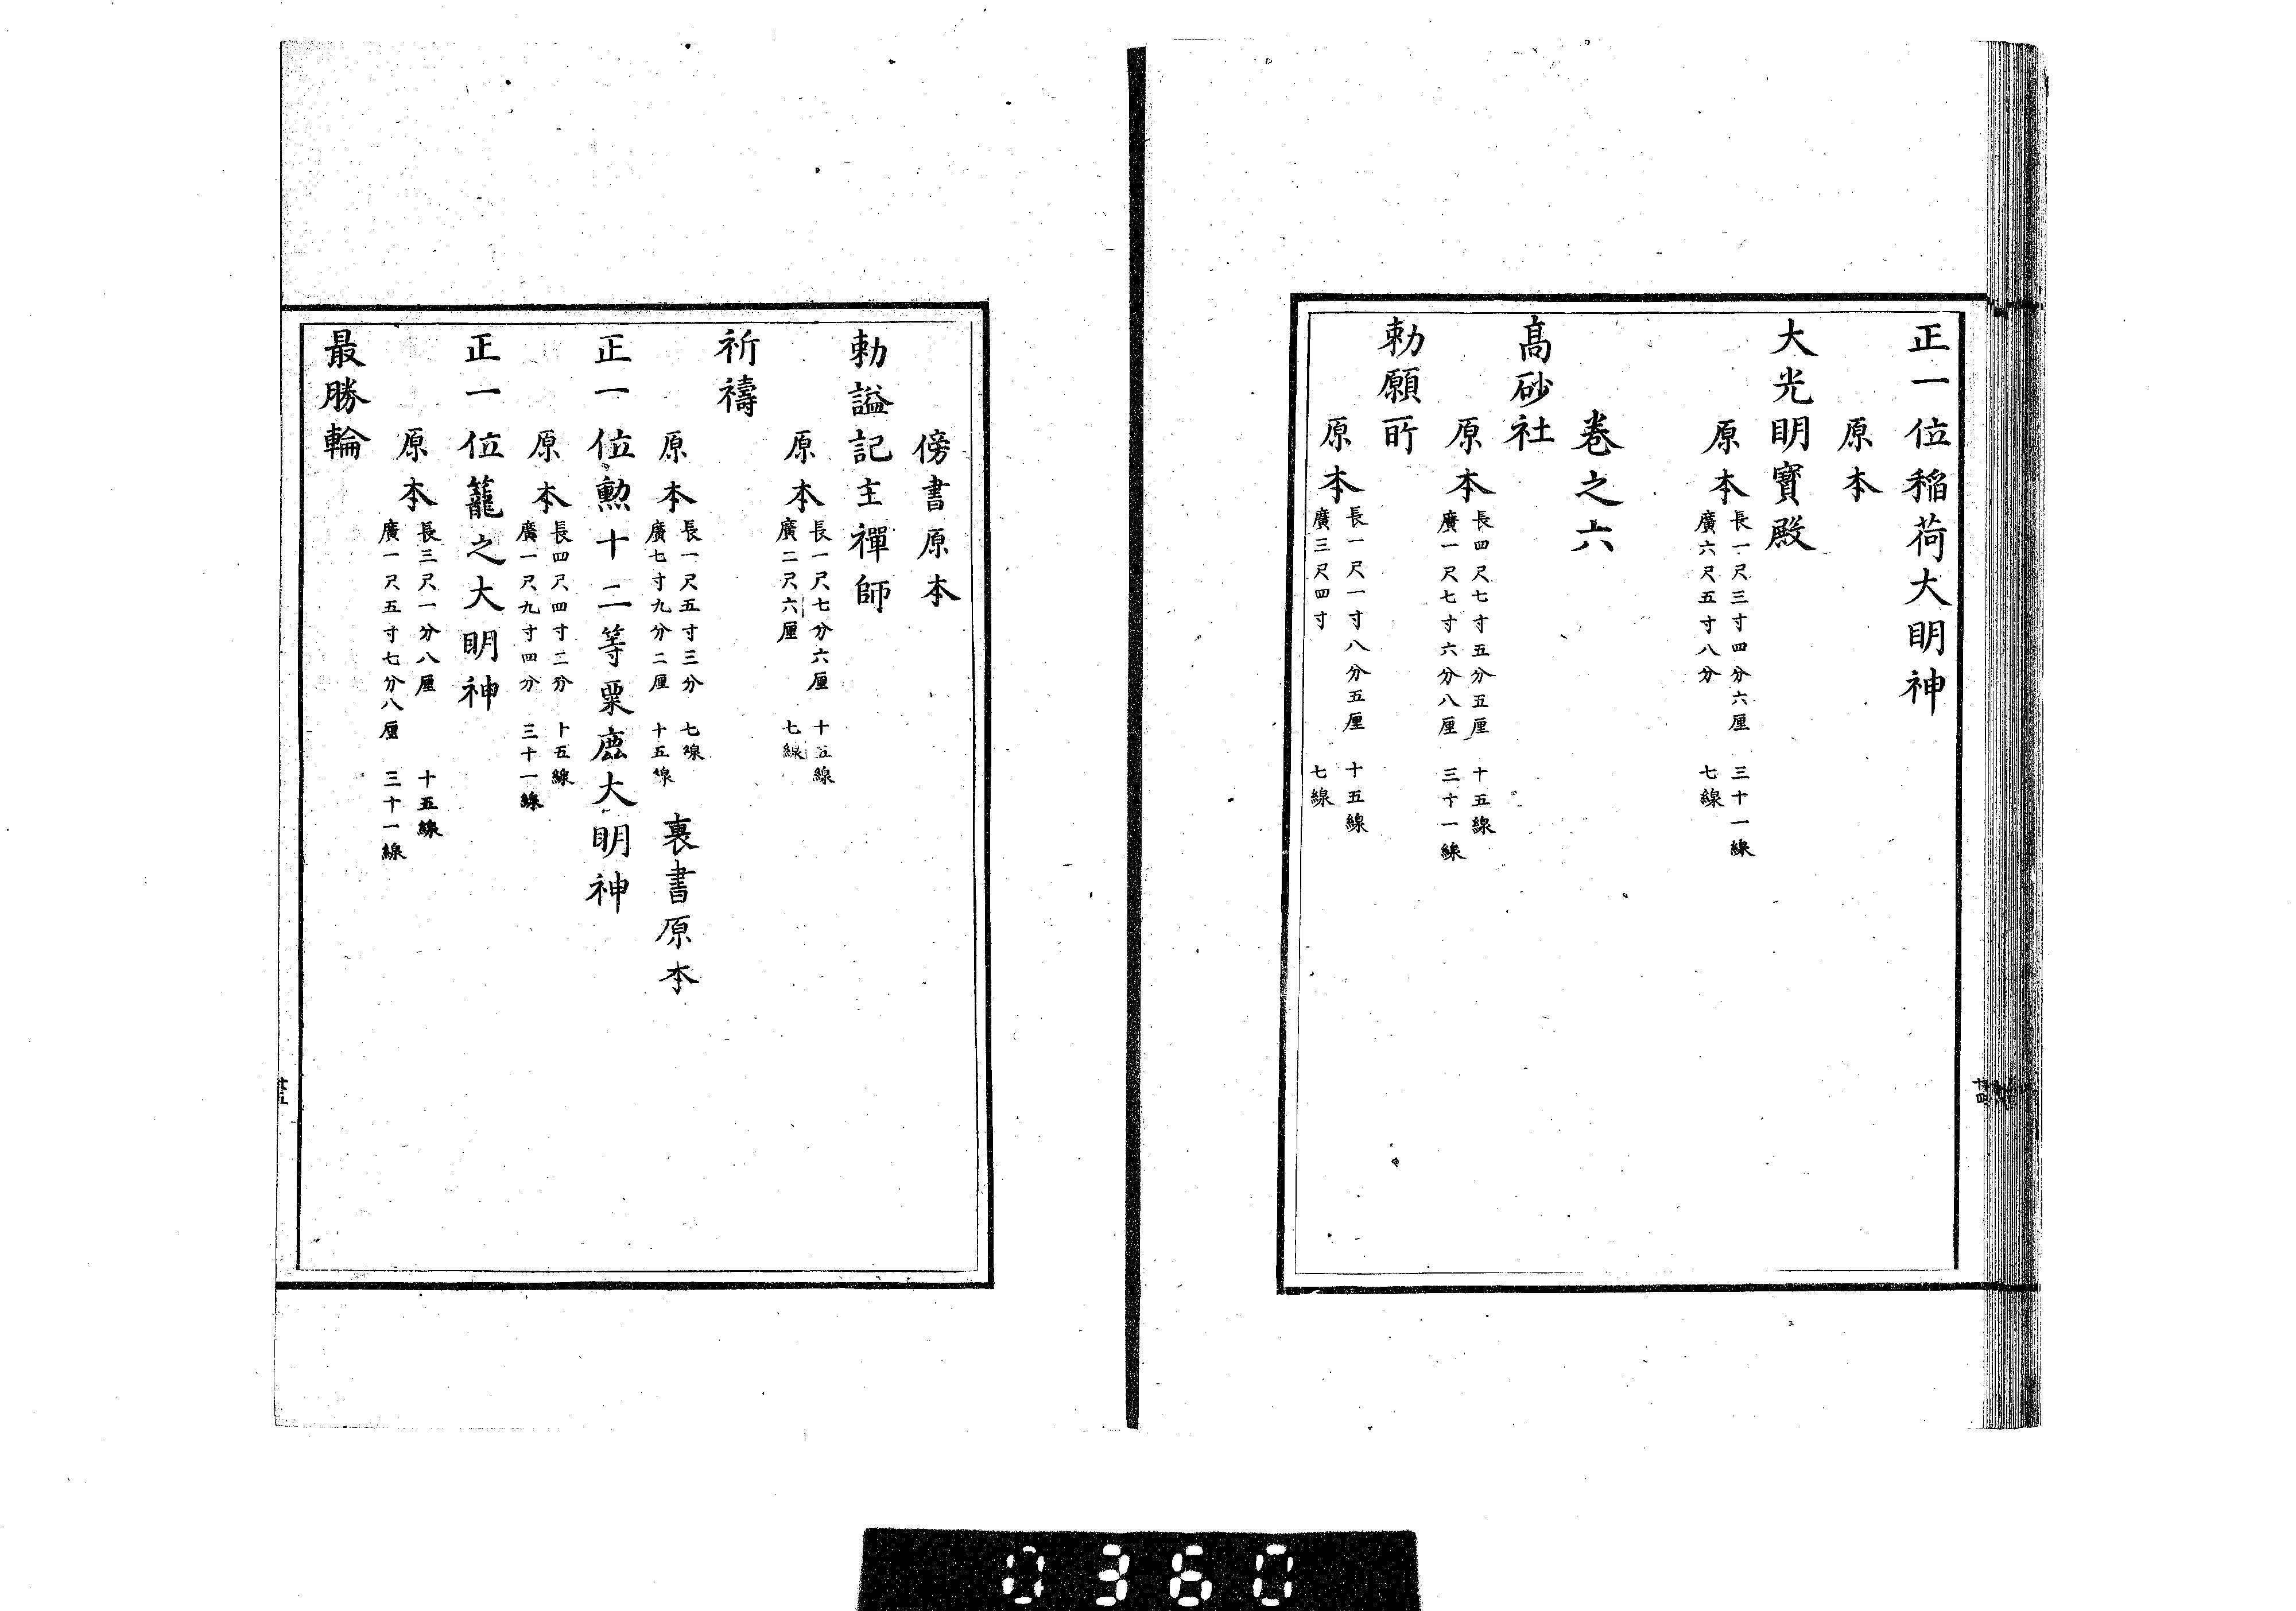 正一位稲荷大明神
原本
大光明寶殿
原本 長一尺三寸四分六厘 三十一線
廣六尺五寸八分 七線
卷之六
髙砂社
原本 長四尺七寸五分五厘 十五線
廣一尺七寸六分八厘 三十一線
勅願所
原本 長一尺一寸八分五厘 十五線
廣三尺四寸 七線
傍書原本
勅謚記主禪師
原本 長一尺七分六厘 十五線
廣二尺六厘 七線
祈禱
原本 長一尺五寸三分 七線
廣七寸九分二厘 十五線
裏書原本
正一位勲十二等粟鹿大明神
原本 長四尺四寸二分 十五線
廣一尺九寸四分 三十一線
正一位籠之大明神
原本 長三尺一分八厘 十五線
廣一尺五寸七分八厘 三十一線
最勝輪
0360